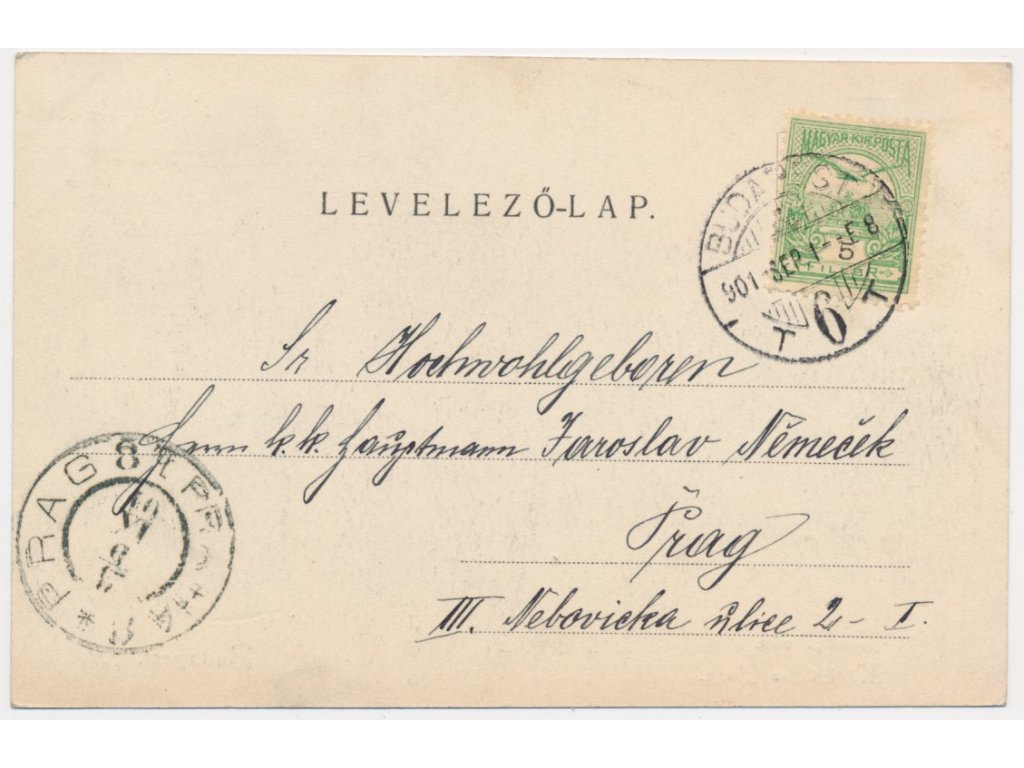 MAGYAR·KIR·POSTA
LEVELEZŐ-LAP.
BUDAPEST
901 SEP. 1 E 8
5
FILLÉR
T 6 T
Sr Hochwohlgeboren
Herrn k. k. Hauptmann Jaroslav Němeček
Prag
III. Nebovicka ulice 2 - I.
PRAG 8 PRAHA